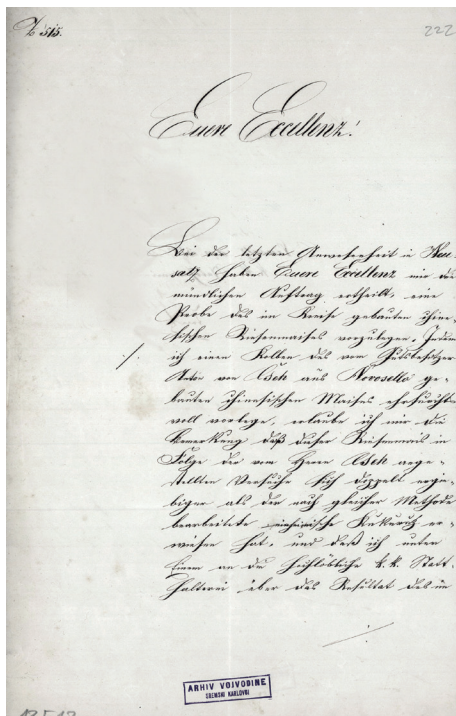 № 515.
222
Euere Excellenz!
Bei der letzten Anwesenheit in Neu
satz haben Euere Excellenz mir den
mündlichen Auftrag ertheilt, eine
Probe des im Kreise gebauten chine
sischen Riesenmaises vorzulegen. Indem
./. ich einen Kolben des vom Gutsbesitzer
von Cseh aus Novosello ge-
bauten chinesischen Maises ehrfurchts
voll vorlege, erlaube ich mir die
Bemerkung daß dieser Riesenmais in
Folge der vom Herrn Cseh ange-
stellten Versuche sich doppelt ergie-
biger als der nach gleicher Methode
bearbeitete einheimische Kukurutz er-
wiesen hat, und daß ich unter
Einem an die hochlöbliche k.k. Statt
halterei über das Resultat des im
./.
ARHIV VOJVODINE
SREMSKI KARLOVCI